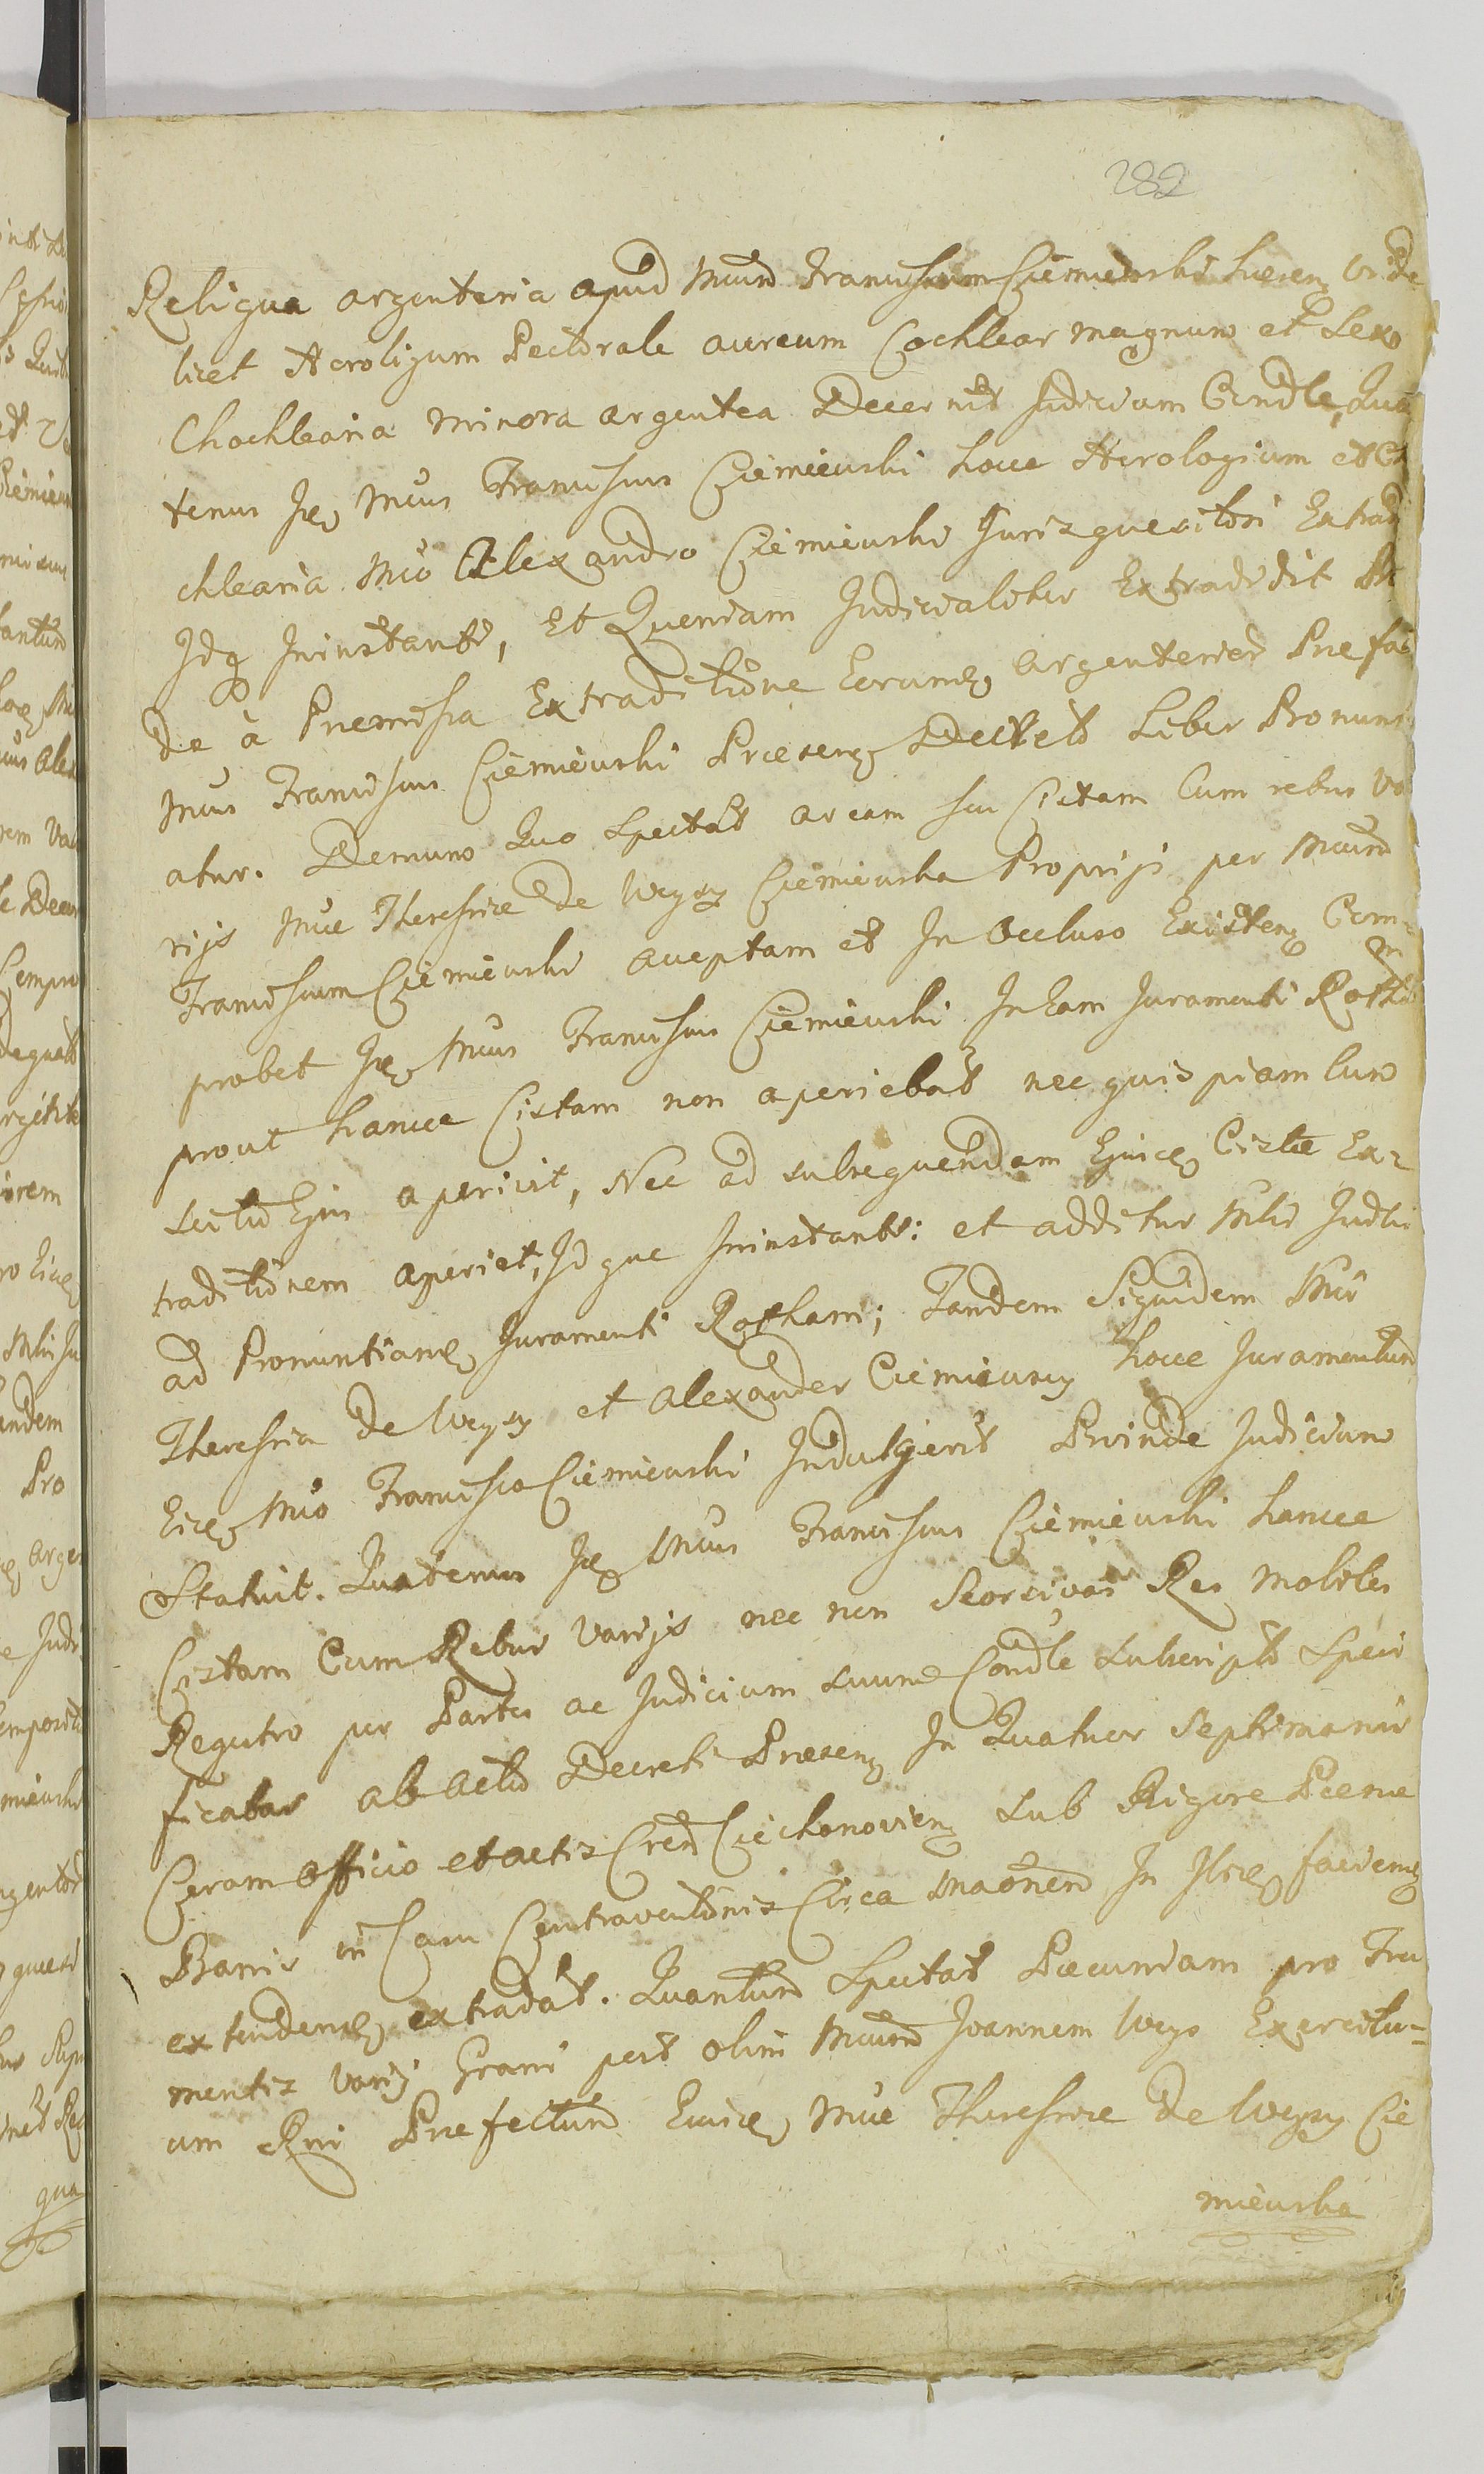 282
Reliqua argenteria apud Mcum Franciscum Cièmiewski haeren Vide
licet Horoligium Pectorale aureum Cochlear magnum et Sex
Chochlearia minora argentea Decernit Judicium Condle, Qua
tenus Ite Mcus Franciscus Cièmiewski hocce Horologium et Co
chlearia Mco Alexandro Cièmiewski Jurisquesitori Extrad
Idq Ininstanti, Et Quoniam Judicialiter Extradidit
de à Praemissa Extraditione Earum argenteriar Praefa
Mcus Franciscus Cièmiewski Praesen Decreto Liber Pronunci
atur. Demum Quo Spectat arcam seu Cistam Cum rebus Va
rijs Mcae Theressiae de Weysy Cièmiewska Proprijs per Mcum
Franciscum Cièmiewski acceptam et In occluso Existen Com-
probet Ite Mcus Franciscus Cièmiewski In Eam Juramenti Rotham
prout hancce Cistam non aperiebat nec quispiam cum
scitu Ejus aperivit, Nec ad subsequendam Ejusce Cistae Ex-
traditionem aperiet, Idque Ininstanti: et additur Mlis Judli
ad Pronuntian Juramenti Rotham; Tandem Siquidem Mci
Theressia de Weysy et Alexander Cièmiewscy hocce Juramentum
Eice Mco Francisco Cièmiewski Indulgerit Proinde Judicium
Statuit. Quatenus Ite Mcus Franciscus Cièmiewski hancce
Cistam Cum Rebus Varijs nec non Seorsivas Res Mobiles
Regestro per Partes ac Judicium suum Condle subscripto Speci
ficatas ab actu Decreti Praesen In Quatuor Septimanis
Coram officio et actis Cren Ciechanovien Sub Rigore Paenae
Bannis in Casu Contraventionis Circa Maonem In Itice faciem
extenden extradat. Quantum Spectat Pecuniam pro Fru
mentis Varij Grani post olim Mcum Joannem Weys Exercitu-
um Rni Praefectum Eiusce Mcae Theressiae de Weysy Cie
miewska